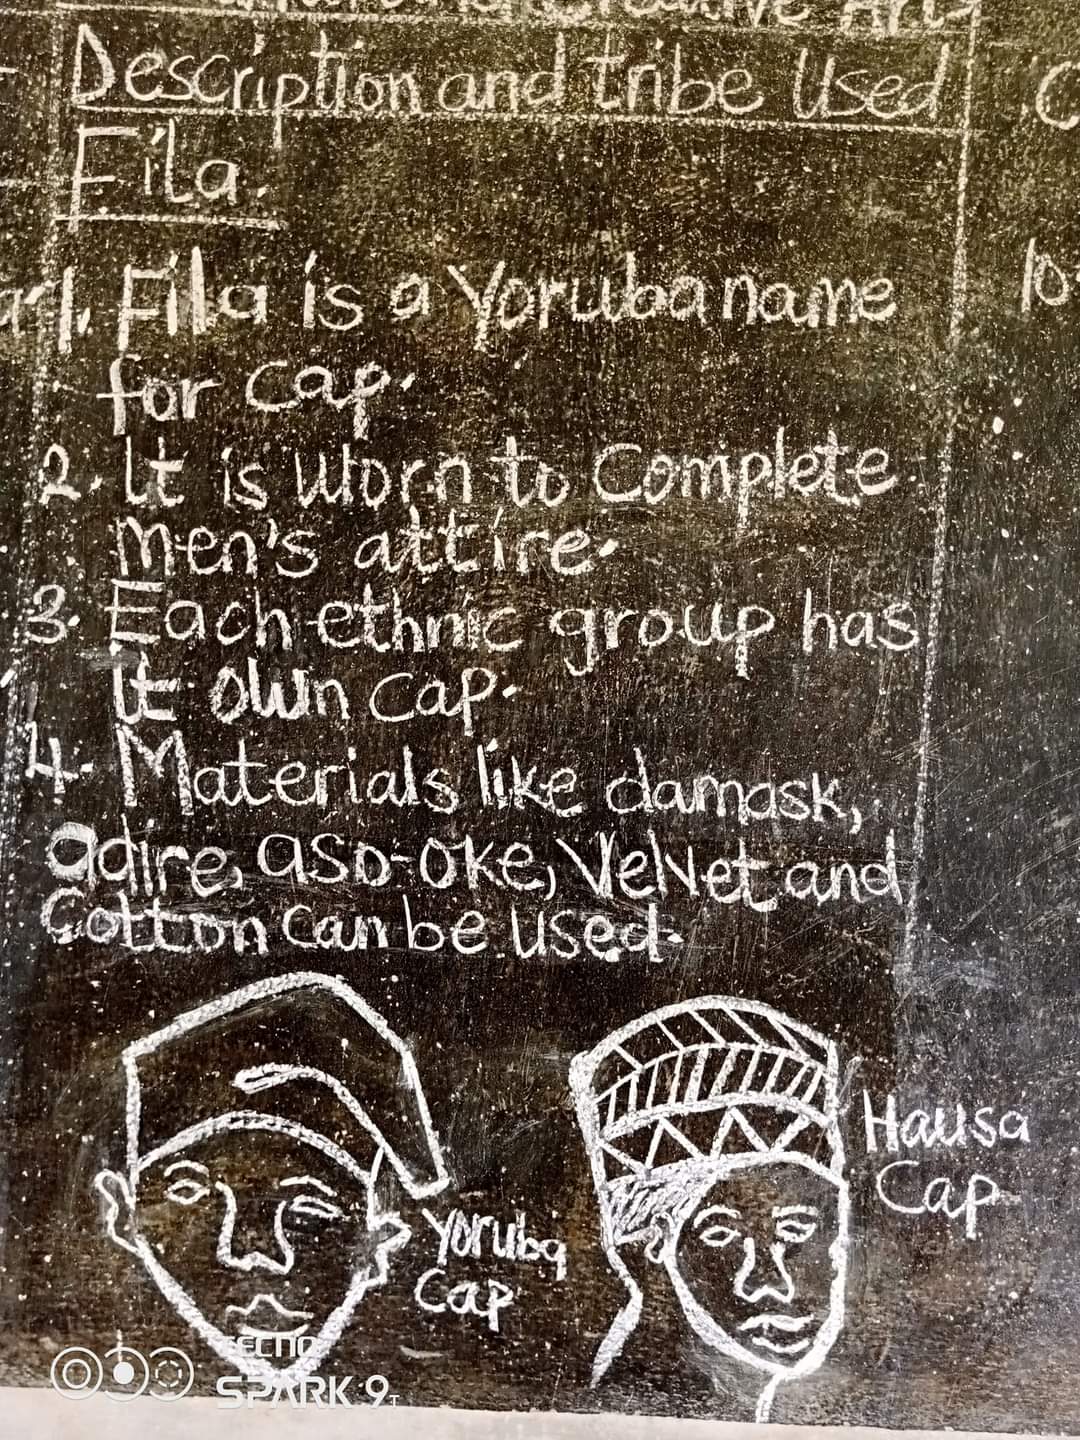 Creative Art
Description and tribe Used
Fila.
1. Fila is a Yoruba name
for cap.
2. It is worn to Complete
men's attire.
3. Each ethnic group has
it own cap.
4. Materials like damask,
adire, aso-oke, Velvet and
Cotton can be used.
Hausa
Cap
Yoruba
Cap
TECNO
SPARK 9T